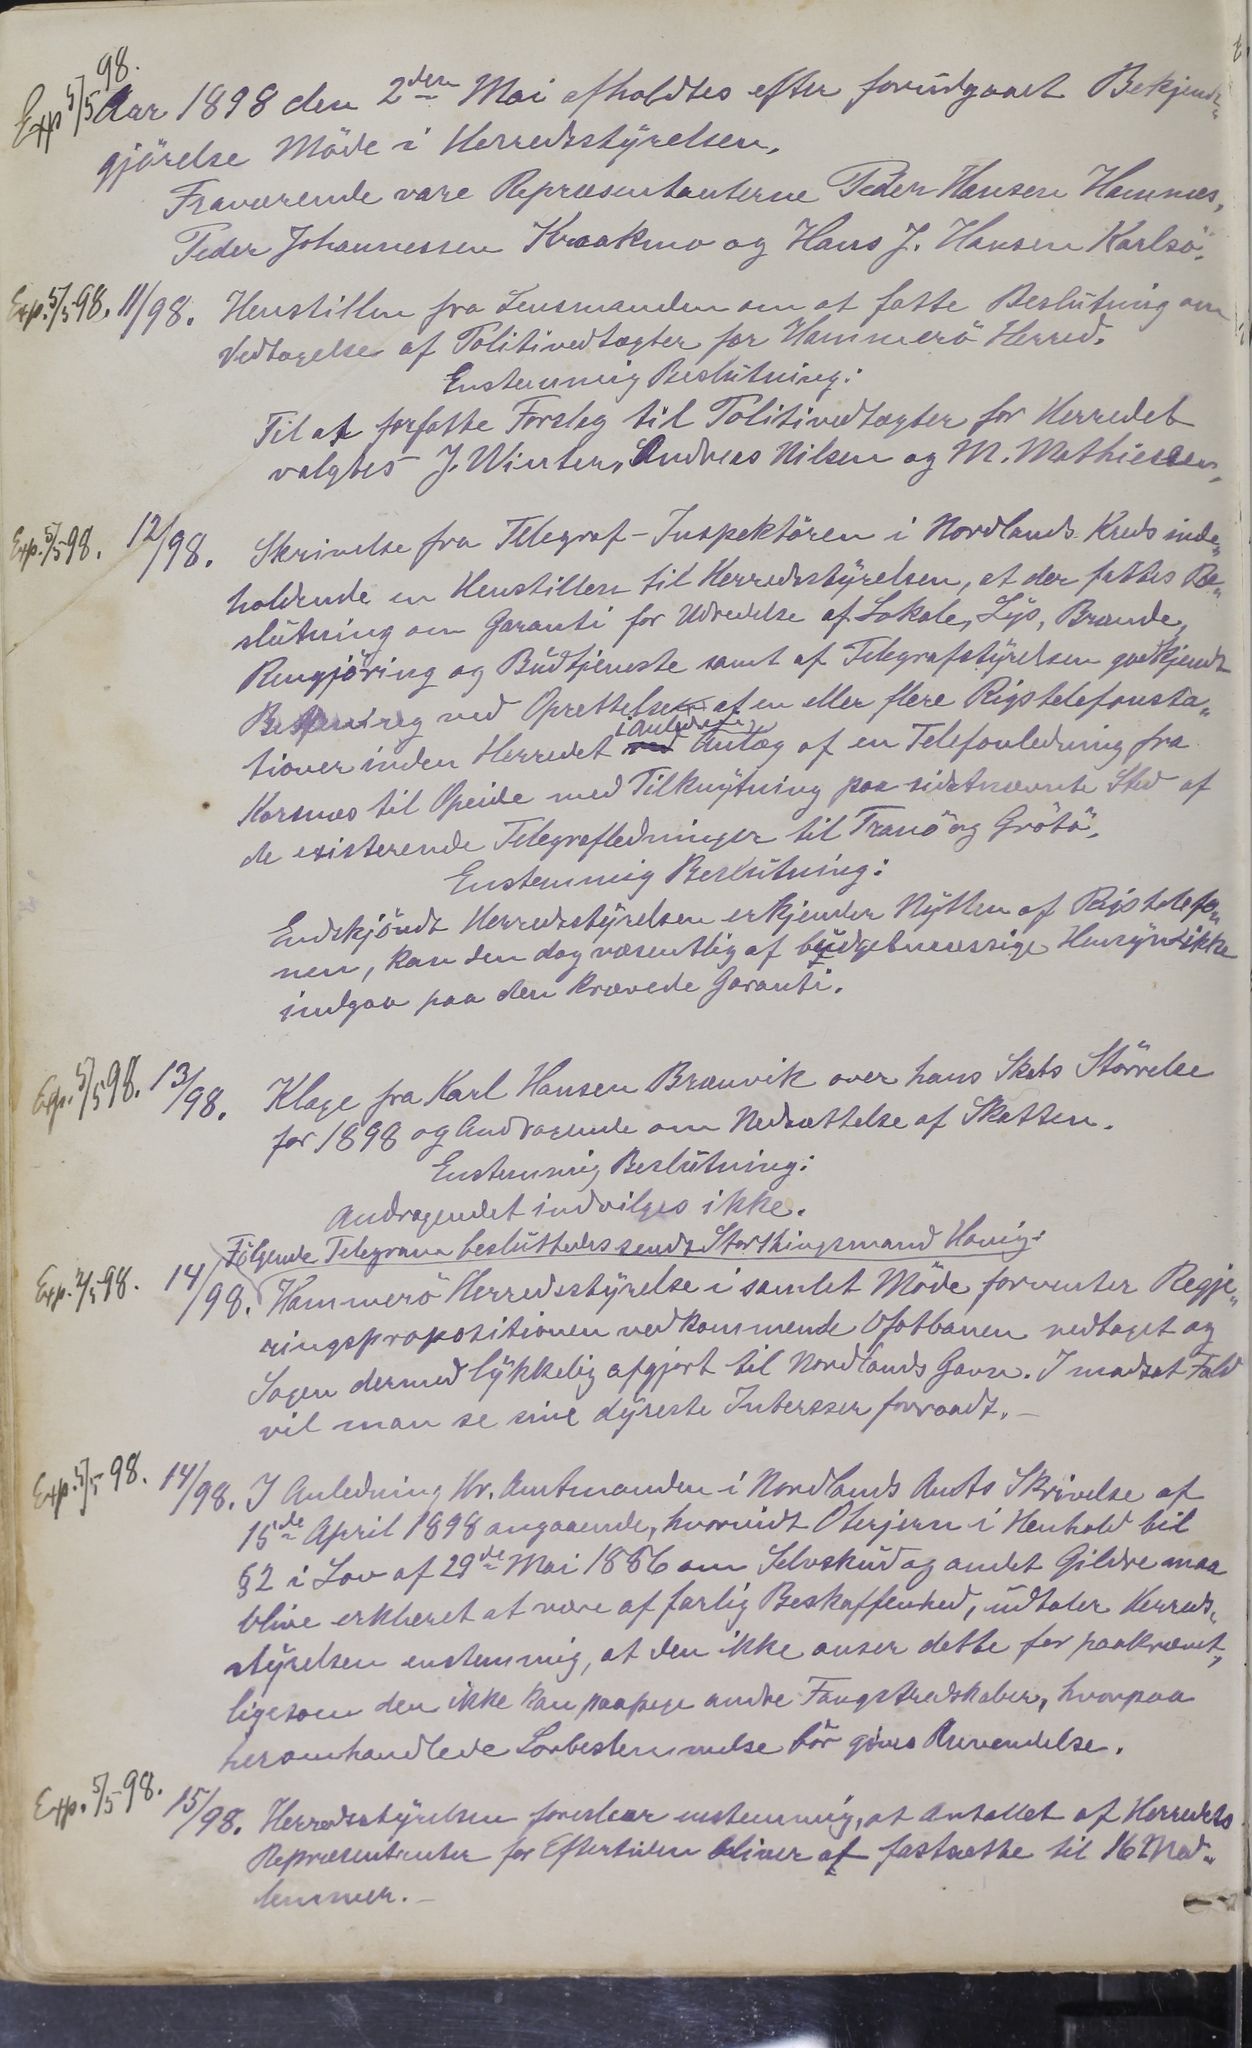 Exp 5/5 98.
Aar 1898 den 2den Mai afholdtes efter forudgaaet Bekjendt-
gjörelse Möde i Herredsstyrelsen.
Fraværende vare Repræsentanterne Peder Hansen Hamnes,
Peder Johannessen Kraakmo og Hans J. Hansen Karlsö.
Exp. 5/5 98. 11/98. Henstillen fra Lensmanden om at fatte Beslutning om
Vedtagelse af Politivedtægter for Hammerö Herred.
Enstemmig Beslutning:
Til at forfatte Forslag til Politivedtægter for Herredet
valgtes J. Winter, Andreas Nilsen og M. Mathiesen.
Exp. 5/5 98. 12/98. Skrivelse fra Telegraf-Inspektören i Nordlands Kreds inde-
holdende en Henstillen til Herredsstyrelsen, at der fattes Be-
slutning om Garanti for Udredelse af Lokale, Lys, Brænde,
Rengjöring og Budtjeneste samt af Telegrafstyrelsen godkjendt
Betjening ved Oprettelse af en eller flere Rigstelefonsta-
i Anledning
tioner inden Herredet ved Anlæg af en Telefonledning fra
Korsnes til Opeide med Tilknytning paa sidstnævnte Sted af
de existerende Telegrafledninger til Tranö og Grötö.
Enstemmig Beslutning:
Endskjöndt Herredsstyrelsen erkjender Nytten af Rigstelefo-
nen, kan den dog væsentlig af budgetmæssige Hensyn ikke
indgaa paa den krævede Garanti.
Exp. 5/5 98. 13/98. Klage fra Karl Hansen Brænvik over hans Skats Störrelse
for 1898 og Andragende om Nedsættelse af Skatten.
Enstemmig Beslutning:
Andragendet indvilges ikke.
Fölgende Telegram besluttedes sendt Storthingsmand Honig:
Exp. 2/5 98. 14/98. Hammerö Herredsstyrelse i samlet Möde forventer Regje-
ringspropositionen vedkommende Ofotbanen vedtaget og
Sagen dermed lykkelig afgjort til Nordlands Gavn. I modsat Fald
vil man se sine dyreste Interesser forraadt.-
Exp. 5/5 98. 14/98. I Anledning Hr. Amtmanden i Nordlands Amts Skrivelse af
15de April 1898 angaaende, hvorvidt Oterjern i Henhold til
§2 i Lov af 29de Mai 1886 om Selvskud og andet Gildre maa
blive erklæret at være af farlig Beskaffenhed, udtaler Herreds-
styrelsen enstemmig, at den ikke anser dette for paakrævet,
ligesom den ikke kan paapege andre Fangstredskaber, hvorpaa
heromhandlede Lovbestemmelse bör gives Anvendelse.
Exp. 5/5 98. 15/98. Herredsstyrelsen foreslaar enstemmig, at Antallet af Herredets
Repræsentanter for Eftertiden bliver at fastsætte til 16 Med-
lemmer.-